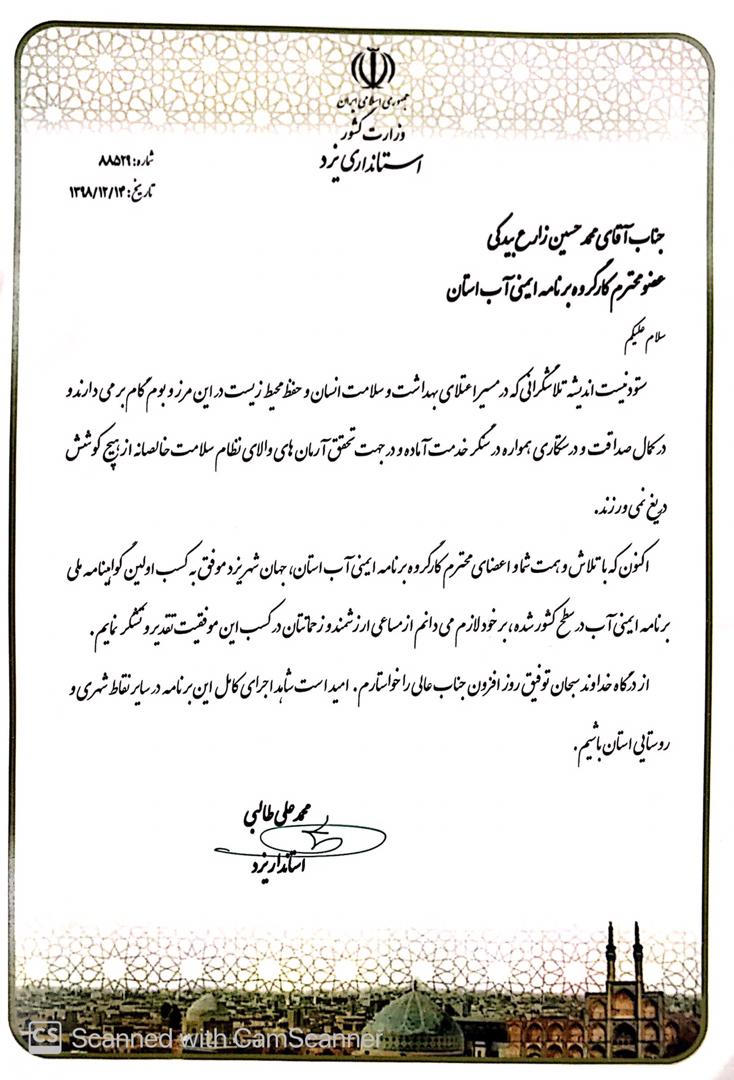 جمهوری اسلامی ایران
وزارت کشور
استانداری یزد
شماره: ۸۸۵۲۹
تاریخ: ۱۳۹۸/۱۲/۱۴
جناب آقای محمد حسین زارع بیدکی
عضو محترم کارگروه برنامه ایمنی آب استان
سلام علیکم
ستودنیست اندیشه تلاشگرانی که در مسیر اعتلای بهداشت و سلامت انسان و حفظ محیط زیست در این مرز و بوم گام بر می دارند و
در کمال صداقت و درستکاری همواره در سنگر خدمت آماده و در جهت تحقق آرمان های والای نظام سلامت خالصانه از هیچ کوشش
دریغ نمی ورزند.
اکنون که با تلاش و همت شما و اعضای محترم کارگروه برنامه ایمنی آب استان، جهان شهر یزد موفق به کسب اولین گواهینامه ملی
برنامه ایمنی آب در سطح کشور شده، بر خود لازم می دانم از مساعی ارزشمند و زحماتتان در کسب این موفقیت تقدیر و تشکر نمایم.
از درگاه خداوند سبحان توفیق روز افزون جناب عالی را خواستارم. امید است شاهد اجرای کامل این برنامه در سایر نقاط شهری و
روستایی استان باشیم.
محمد علی طالبی
استاندار یزد
CS Scanned with CamScanner